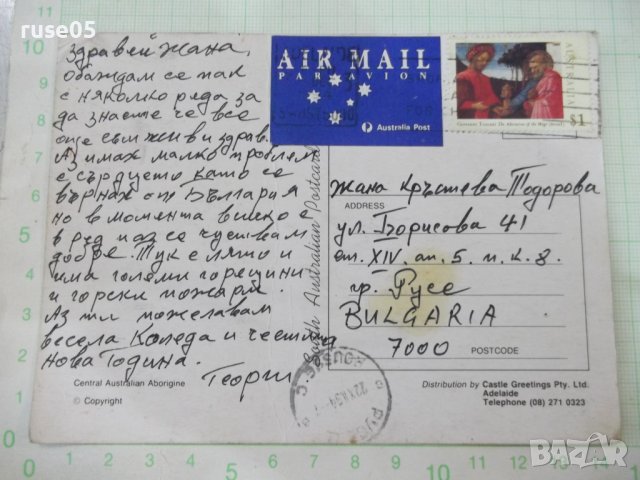 ruse05
здравей Жана,
обаждам се пак
с няколко реда за
да знаете че все
още съм жив и здрав.
Аз имах малко проблем
с сърдцето като се
върнах от България
но в момента всичко е
в ред и аз се чуствам
добре. Тук е лято и
има големи горещини
и горски пожари.
Аз ти пожелавам
весела Коледа и честита
Нова Година.
Георги
Central Australian Aborigine
© Copyright
South Australian Postcard
AIR MAIL
PAR AVION
Australia Post
$1
Жана Кръстева Тодорова
ADDRESS
ул. Борисова 41
ет. XIV. ап. 5. п. к. 8.
гр. Русе
BULGARIA
7000
POSTCODE
Distribution by Castle Greetings Pty. Ltd.
Adelaide
Telephone (08) 271 0323
bazar.bg